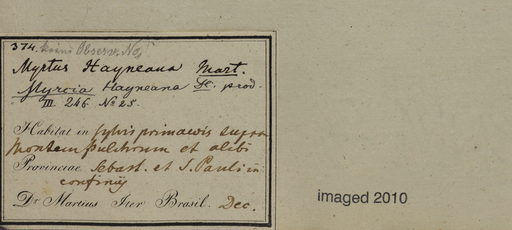 374. Observ. No
Myrtus Hayneana Mart.
Myrcia Hayneana DC. prod.
III. 246. No 25.
Habitat in sylvis primaevis supra
Montem pulchrum et alibi
Provinciae Sebast. et S. Pauli in
confiniis
Dr. Martius Iter Brasil. Dec.
imaged 2010